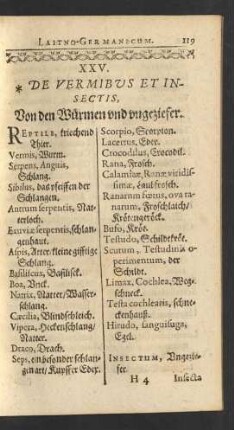 LATINO-GERMANICUM. 119
XXV.
* DE VERMIBUS ET IN-
SECTIS,
Von den Würmen vnd vngezieser.
REPTILE, kriechend
Thier.
Vermis, Wurm.
Serpens, Anguis,
Schlang.
Sibilus, das pfeiffen der
Schlangen.
Antrum serpentis, Nat-
terloch.
Exuviæ serpentis, schlan-
genhaut.
Aspis, Atter/kleine gifftige
Schlang.
Basiliscus, Basilisck.
Boa,
Natrix, Natter/Wasser-
schlang.
Cæcilia, Blindschleich.
Vipera, Heckenschlang/
Natter.
Draco, Drach.
Seps, ein besonder schlan-
gen art/Kupffer Edex.
Scorpio, Scorpion.
Lacertus, Edex.
Crocodilus, Crocodil.
Rana, Frosch.
Calamitæ, Ranæ viridis-
simæ, Laubfrosch.
Ranarum fœtus, ova ra-
narum, Froschlaich/
Krötengröck.
Bufo, Kröt.
Testudo, Schildkröt.
Scutum, Testudinis o-
perimentum, der
Schildt.
Limax, Cochlea, Weg-
schneck.
Testa cochlearis, schne-
ckenhauß.
Hirudo, sanguisuga,
Egel.
INSECTUM, Vngezie-
fer.
H 4 Insecta